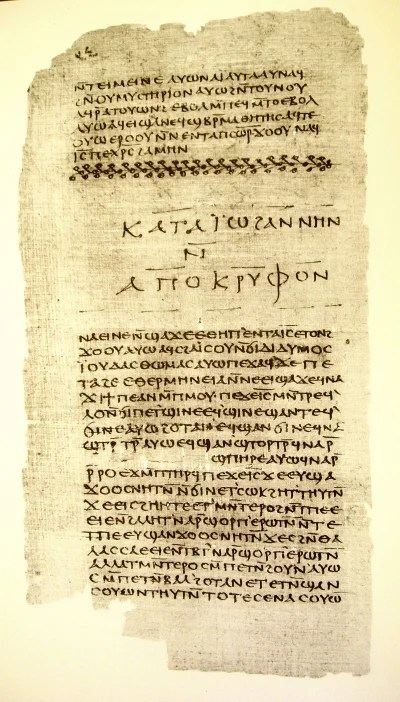 ⲛ̄ⲧⲉⲓⲙⲉⲓⲛⲉ ⲁⲩⲱ ⲛⲁⲓ ⲁⲩⲧⲁⲁⲩ ⲛⲁϥ
ϩⲛ̄ ⲟⲩⲙⲩⲥⲧⲏⲣⲓⲟⲛ ⲁⲩⲱ ϩⲛ̄ ⲧⲟⲩⲛⲟⲩ
ⲁϥⲣ̄ⲁⲧⲟⲩⲱⲛϩ ⲉⲃⲟⲗ ⲙ̄ⲡⲉϥⲙ̄ⲧⲟ ⲉⲃⲟⲗ
ⲁⲩⲱ ⲁϥⲉⲓ ϣⲁ ⲛⲉϥϣⲃⲣ̄ⲙⲁⲑⲏⲧⲏⲥ ⲁϥⲧⲉ
ⲟⲩⲱ ⲉⲣⲟⲟⲩ ⲛ̄ⲛⲉⲛⲧⲁⲡⲥⲱ̅ⲣ̅ ϫⲟⲟⲩ ⲛⲁϥ
ⲓ̅ⲥ̅ ⲡⲉⲭ̅ⲣ̅ⲥ̅ ϩⲁⲙⲏⲛ
ⲕⲁⲧⲁ ⲓ̈ⲱϩⲁⲛⲛⲏⲛ
ⲛ̄
ⲁⲡⲟⲕⲣⲩⲫⲟⲛ
ⲛⲁⲉⲓ ⲛⲉ ⲛ̄ϣⲁϫⲉ ⲉⲑⲏⲡ ⲉⲛⲧⲁ ⲓ̅ⲥ̅ ⲉⲧⲟⲛϩ
ϫⲟⲟⲩ ⲁⲩⲱ ⲁϥⲥϩⲁⲓⲥⲟⲩ ⲛ̄ϭⲓ ⲇⲓⲇⲩⲙⲟⲥ
ⲓ̈ⲟⲩⲇⲁⲥ ⲑⲱⲙⲁⲥ ⲁⲩⲱ ⲡⲉϫⲁϥ ϫⲉ ⲡⲉ
ⲧⲁϩⲉ ⲉⲑⲉⲣⲙⲏⲛⲉⲓⲁ ⲛ̄ⲛⲉⲉⲓϣⲁϫⲉ ϥⲛⲁ
ϫⲓ ϯⲡⲉ ⲁⲛ ⲙ̄ⲡⲙⲟⲩ ⲡⲉϫⲉ ⲓ̅ⲥ̅ ⲙⲛ̄ⲧⲣⲉϥ
ⲗⲟ ⲛ̄ϭⲓ ⲡⲉⲧϣⲓⲛⲉ ⲉϥϣⲓⲛⲉ ϣⲁⲛⲧⲉϥ
ϭⲓⲛⲉ ⲁⲩⲱ ϩⲟⲧⲁⲛ ⲉϥϣⲁⲛϭⲓⲛⲉ ϥⲛⲁ
ϣⲧⲣ̄ⲧⲣ̄ ⲁⲩⲱ ⲉϥϣⲁⲛϣⲧⲟⲣⲧⲣ̄ ϥⲛⲁⲣ̄
ϣⲡⲏⲣⲉ ⲁⲩⲱ ϥⲛⲁⲣ̄
ⲣ̄ⲣⲟ ⲉϫⲙ̄ ⲡⲧⲏⲣϥ ⲡⲉϫⲉ ⲓ̅ⲥ̅ ϫⲉ ⲉⲩϣⲁ
ϫⲟⲟⲥ ⲛⲏⲧⲛ̄ ⲛ̄ϭⲓ ⲛⲉⲧⲥⲱⲕ ϩⲏⲧ ⲧⲏⲩⲧⲛ̄
ϫⲉ ⲉⲓⲥϩⲏⲏⲧⲉ ⲉⲧⲙⲛ̄ⲧⲉⲣⲟ ϩⲛ̄ ⲧⲡⲉ ⲉ
ⲉⲓⲉ ⲛ̄ϩⲁⲗⲏⲧ ⲛⲁⲣ̄ ϣⲟⲣⲡ ⲉⲣⲱⲧⲛ̄ ⲛ̄ⲧⲉ
ⲧⲡⲉ ⲉⲩϣⲁⲛϫⲟⲟⲥ ⲛⲏⲧⲛ̄ ϫⲉ ⲥϩⲛ̄ ⲑⲁ
ⲗⲁⲥⲥⲁ ⲉⲉⲓⲉ ⲛ̄ⲧⲃⲧ ⲛⲁⲣ̄ ϣⲟⲣⲡ ⲉⲣⲱⲧⲛ̄
ⲁⲗⲗⲁ ⲧⲙⲛ̄ⲧⲉⲣⲟ ⲥⲙ̄ⲡⲉⲧⲛ̄ϩⲟⲩⲛ ⲁⲩⲱ
ⲥⲙ̄ⲡⲉⲧⲛ̄ⲃⲁⲗ ϩⲟⲧⲁⲛ ⲉⲧⲉⲧⲛ̄ϣⲁⲛ
ⲥⲟⲩⲱⲛ ⲧⲏⲩⲧⲛ̄ ⲧⲟⲧⲉ ⲥⲉⲛⲁⲥⲟⲩⲱ